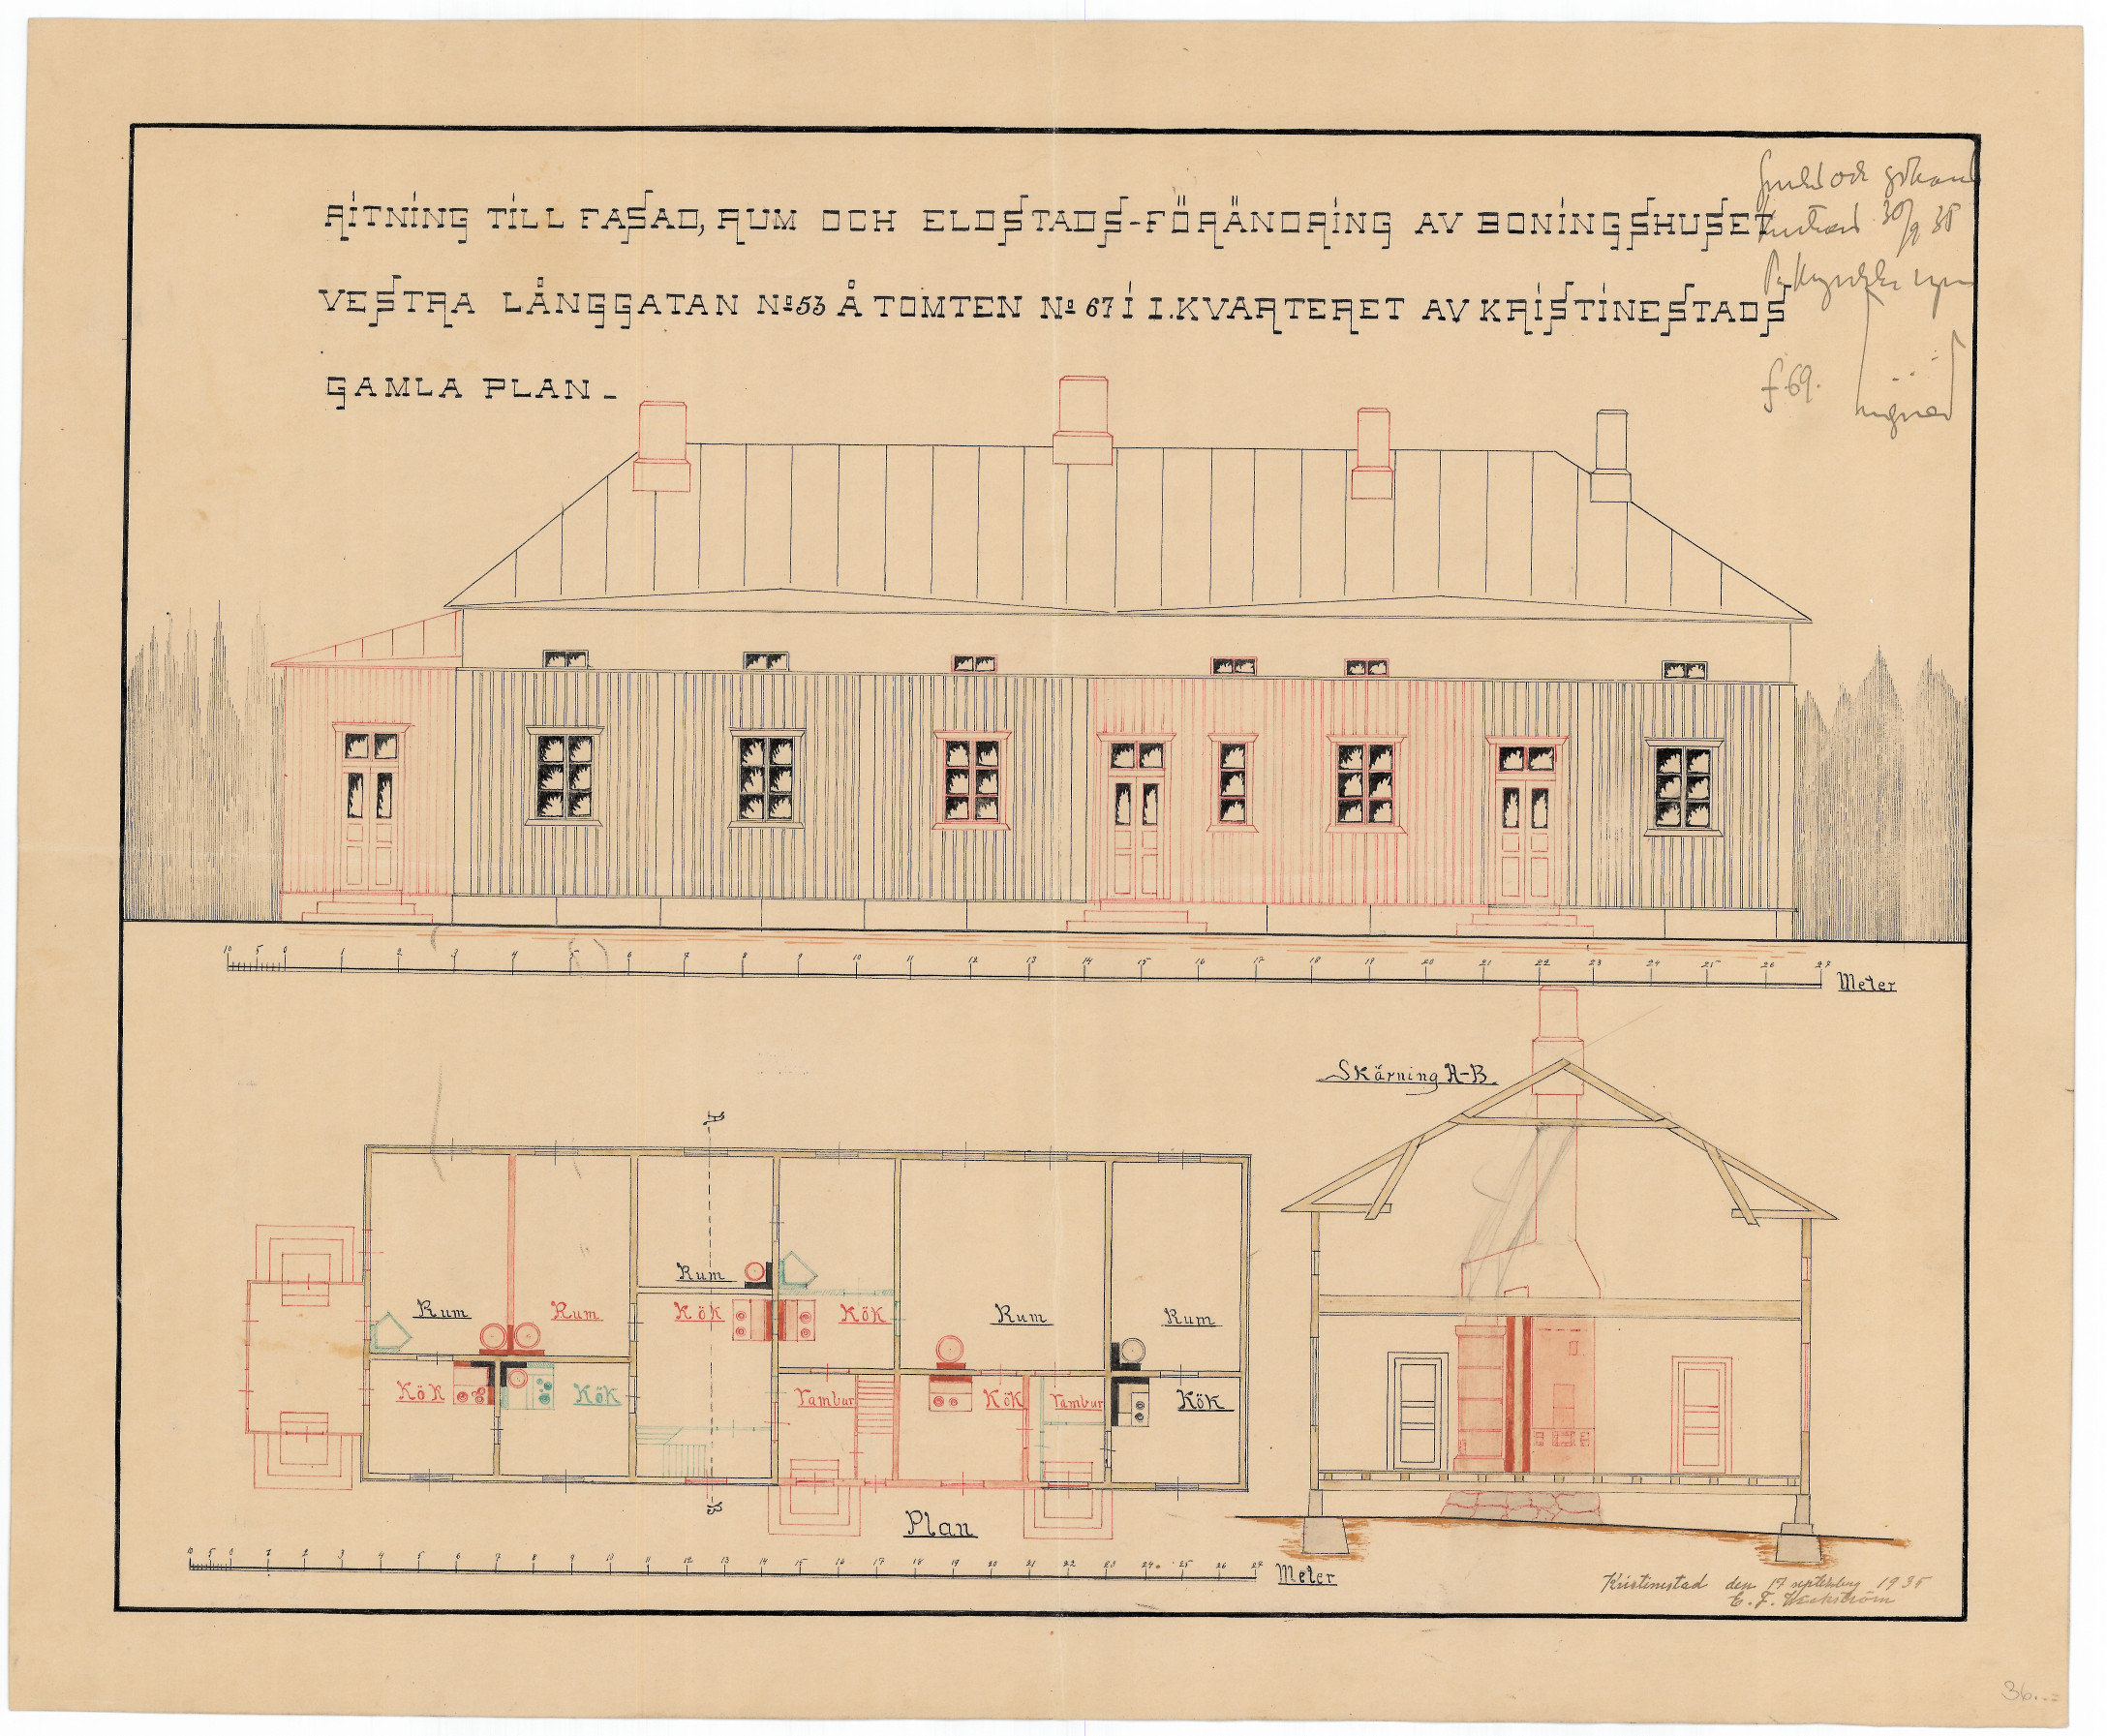 RITNING TILL FASAD, RUM OCH ELDSTADS-FÖRÄNDRING AV BONINGSHUSET
VESTRA LÅNGGATAN No 53 Å TOMTEN No 67 I I.KVARTERET AV KRISTINESTADS
GAMLA PLAN_
30/9 35
f 69.
10 5 0 1 2 3 4 5 6 7 8 9 10 11 12 13 14 15 16 17 18 19 20 21 22 23 24 25 26 27 Meter
Skärning A-B.
A
Rum Rum Rum Kök Kök Rum Rum
Kök Kök Tambur Kök Tambur Kök
B
Plan
10 5 0 1 2 3 4 5 6 7 8 9 10 11 12 13 14 15 16 17 18 19 20 21 22 23 24 25 26 27 Meter
Kristinestad den 17 september 1935
E. F.
36.-=